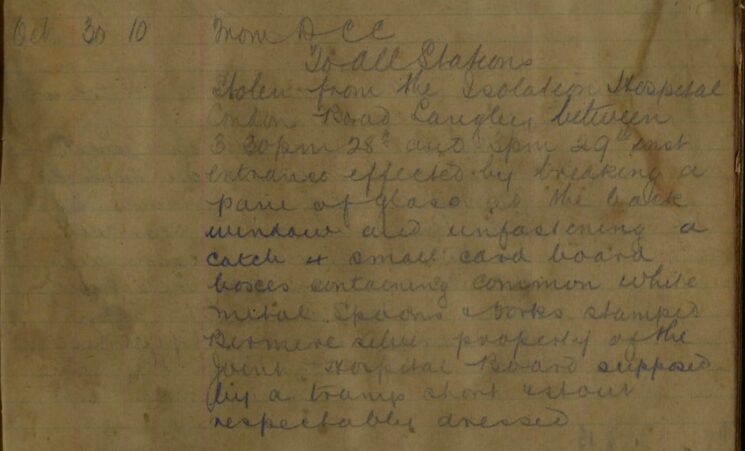 Oct 30 10 From D C C
To All Stations
Stolen from the Isolation Hospital
London Road Langley between
3.30pm 28th and 1pm 29th inst
entrance effected by breaking a
pane of glass at the back
window and unfastening a
catch 4 small card board
boxes containing common white
metal spoons & forks stamped
silver property of the
Joint Hospital Board supposed
by a tramp short & stout
respectably dressed